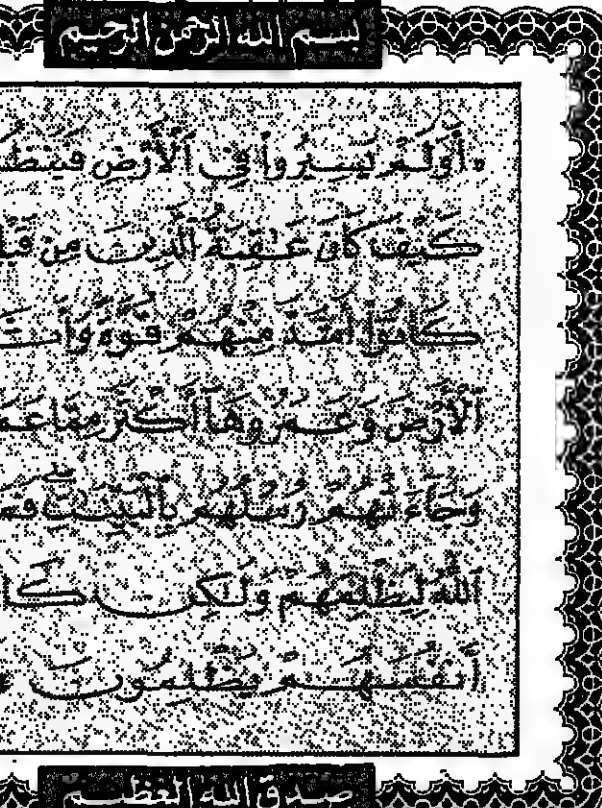 بسم الله الرحمن الرحيم
أَوَلَمْ يَسِيرُوا۟ فِى ٱلْأَرْضِ
كَيْفَ كَانَ عَـٰقِبَةُ ٱلَّذِينَ مِن
كَانُوٓا۟ أَشَدَّ مِنْهُمْ قُوَّةً
ٱلْأَرْضَ وَعَمَرُوهَآ أَكْثَرَ مِمَّا
وَجَآءَتْهُمْ رُسُلُهُم بِٱلْبَيِّنَـٰتِ ۖ
ٱللَّهُ لِيَظْلِمَهُمْ وَلَـٰكِن
أَنفُسَهُمْ يَظْلِمُونَ
صدق الله العظيم